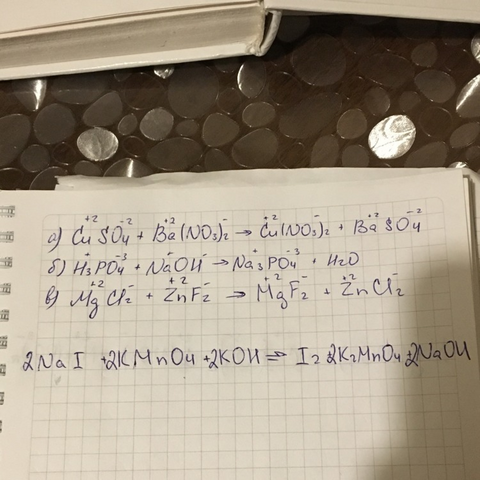 а) Cu⁺²SO₄⁻² + Ba⁺²(NO₃)₂⁻ → Cu⁺²(NO₃)₂⁻ + Ba⁺²SO₄⁻²
б) H₃⁺PO₄⁻³ + Na⁺OH⁻ → Na₃⁺PO₄⁻³ + H₂O
в) Mg⁺²Cl₂⁻ + Zn⁺²F₂⁻ → Mg⁺²F₂⁻ + Zn⁺²Cl₂⁻
2NaI + 2KMnO₄ + 2KOH = I₂ + 2K₂MnO₄ + 2NaOH